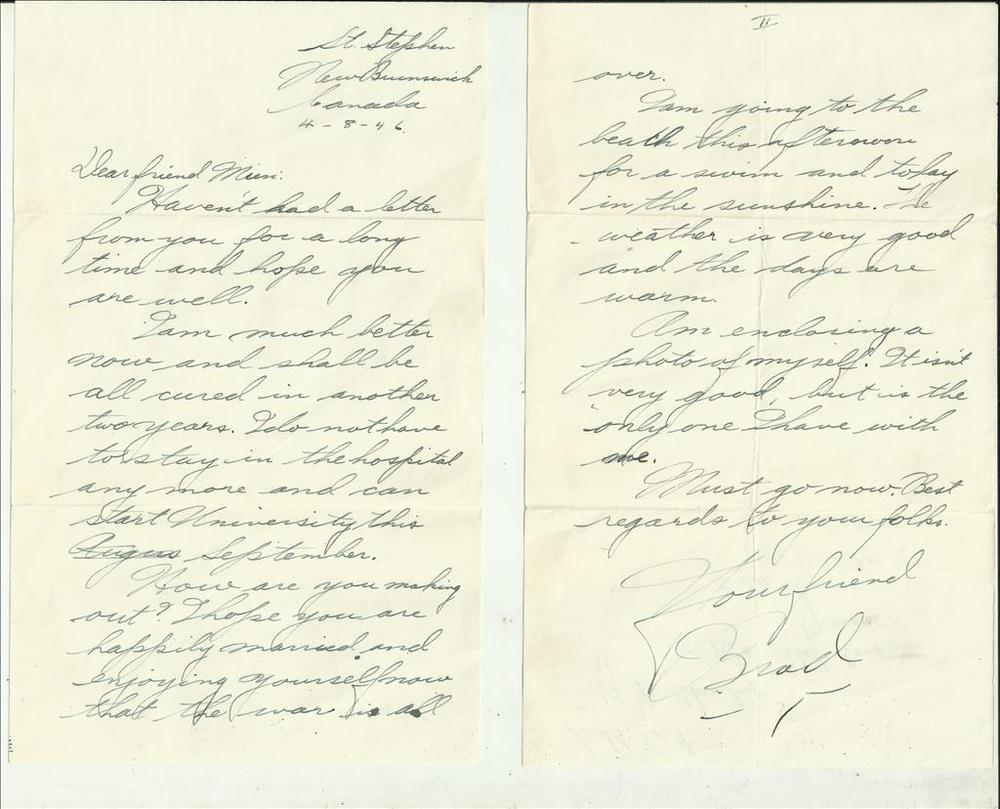 St. Stephen
New Brunswick
Canada
4-8-46
Dear friend Mien:
Haven't had a letter
from you for a long
time and hope you
are well.
I am much better
now and shall be
all cured in another
two years. I do not have
to stay in the hospital
any more and can
start University this
Augus September.
How are you making
out? I hope you are
happily married and
enjoying yourself now
that the war is all
II
over.
I am going to the
beach this afternoon
for a swim and to lay
in the sunshine. The
weather is very good
and the days are
warm.
Am enclosing a
photo of myself. It isn't
very good, but is the
only one I have with
me.
Must go now. Best
regards to your folks.
Your friend
Brad